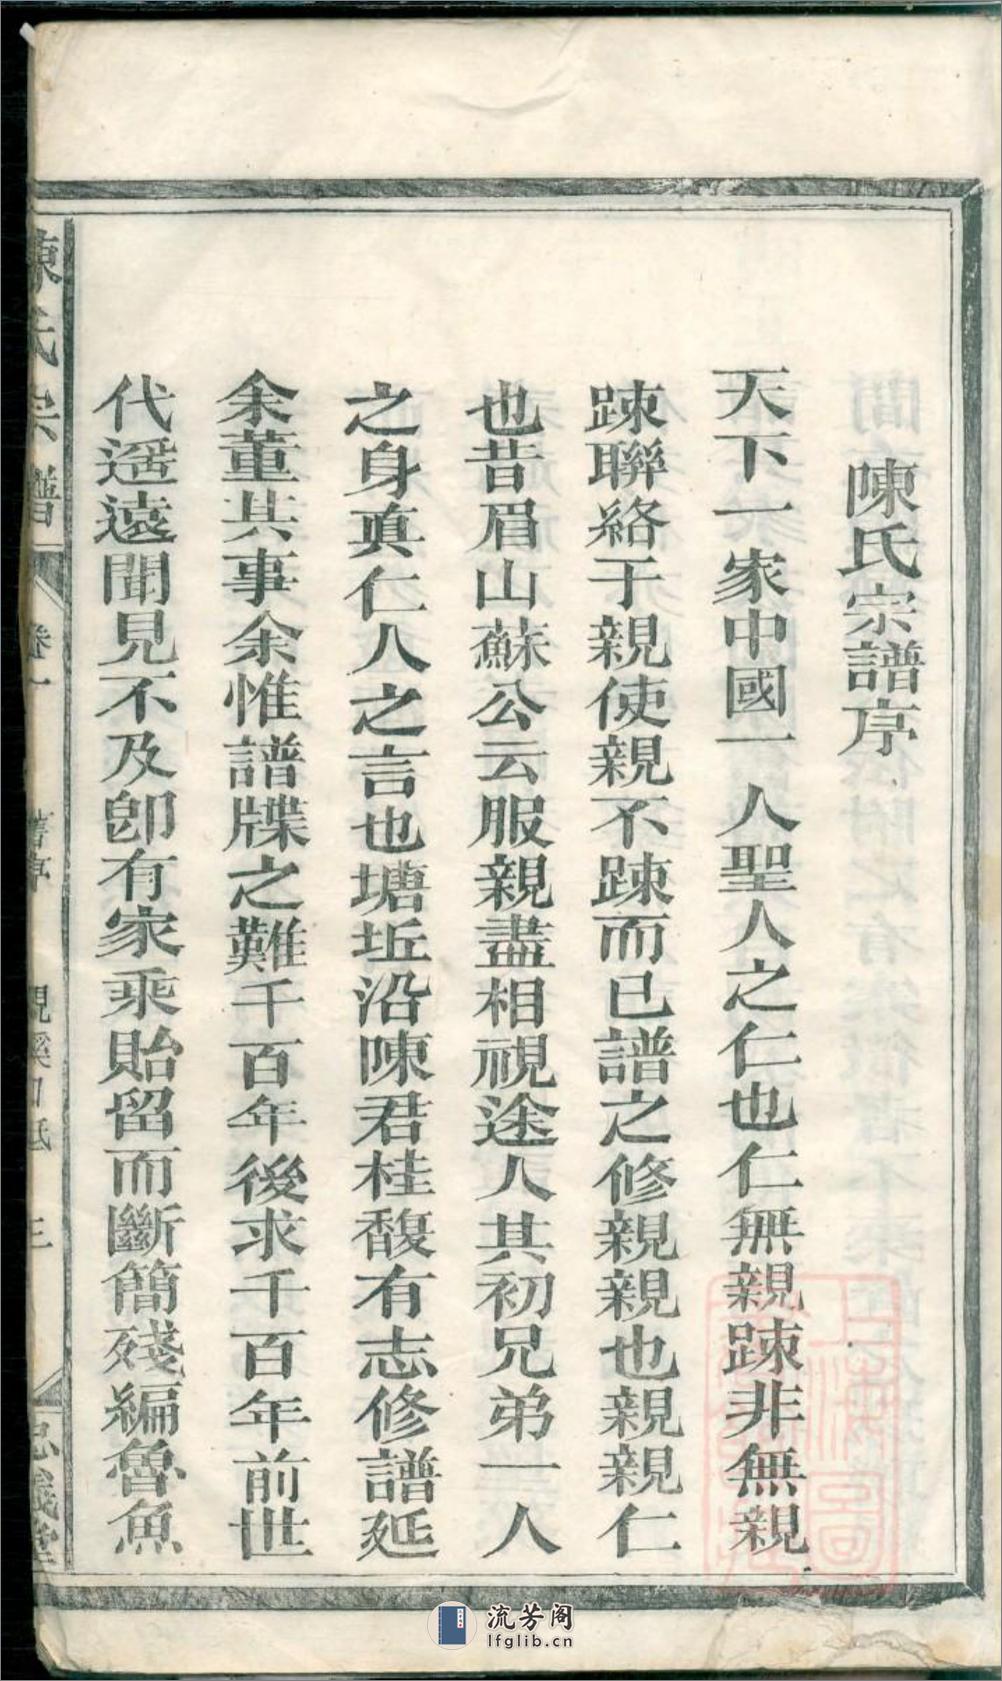 陳氏宗譜序
天下一家中國一人聖人之仁也仁無親踈非無親
踈聯絡于親使親不踈而已譜之修親親也親親仁
也昔眉山蘇公云服親盡相視途人其初兄弟一人
之身真仁人之言也塘坵沿陳君桂馥有志修譜延
余董其事余惟譜牒之難千百年後求千百年前世
代遥遠聞見不及卽有家乘貽留而斷簡殘編魯魚
陳氏宗譜 卷一 舊序 三 忠義堂
流芳阁
lfglib.cn